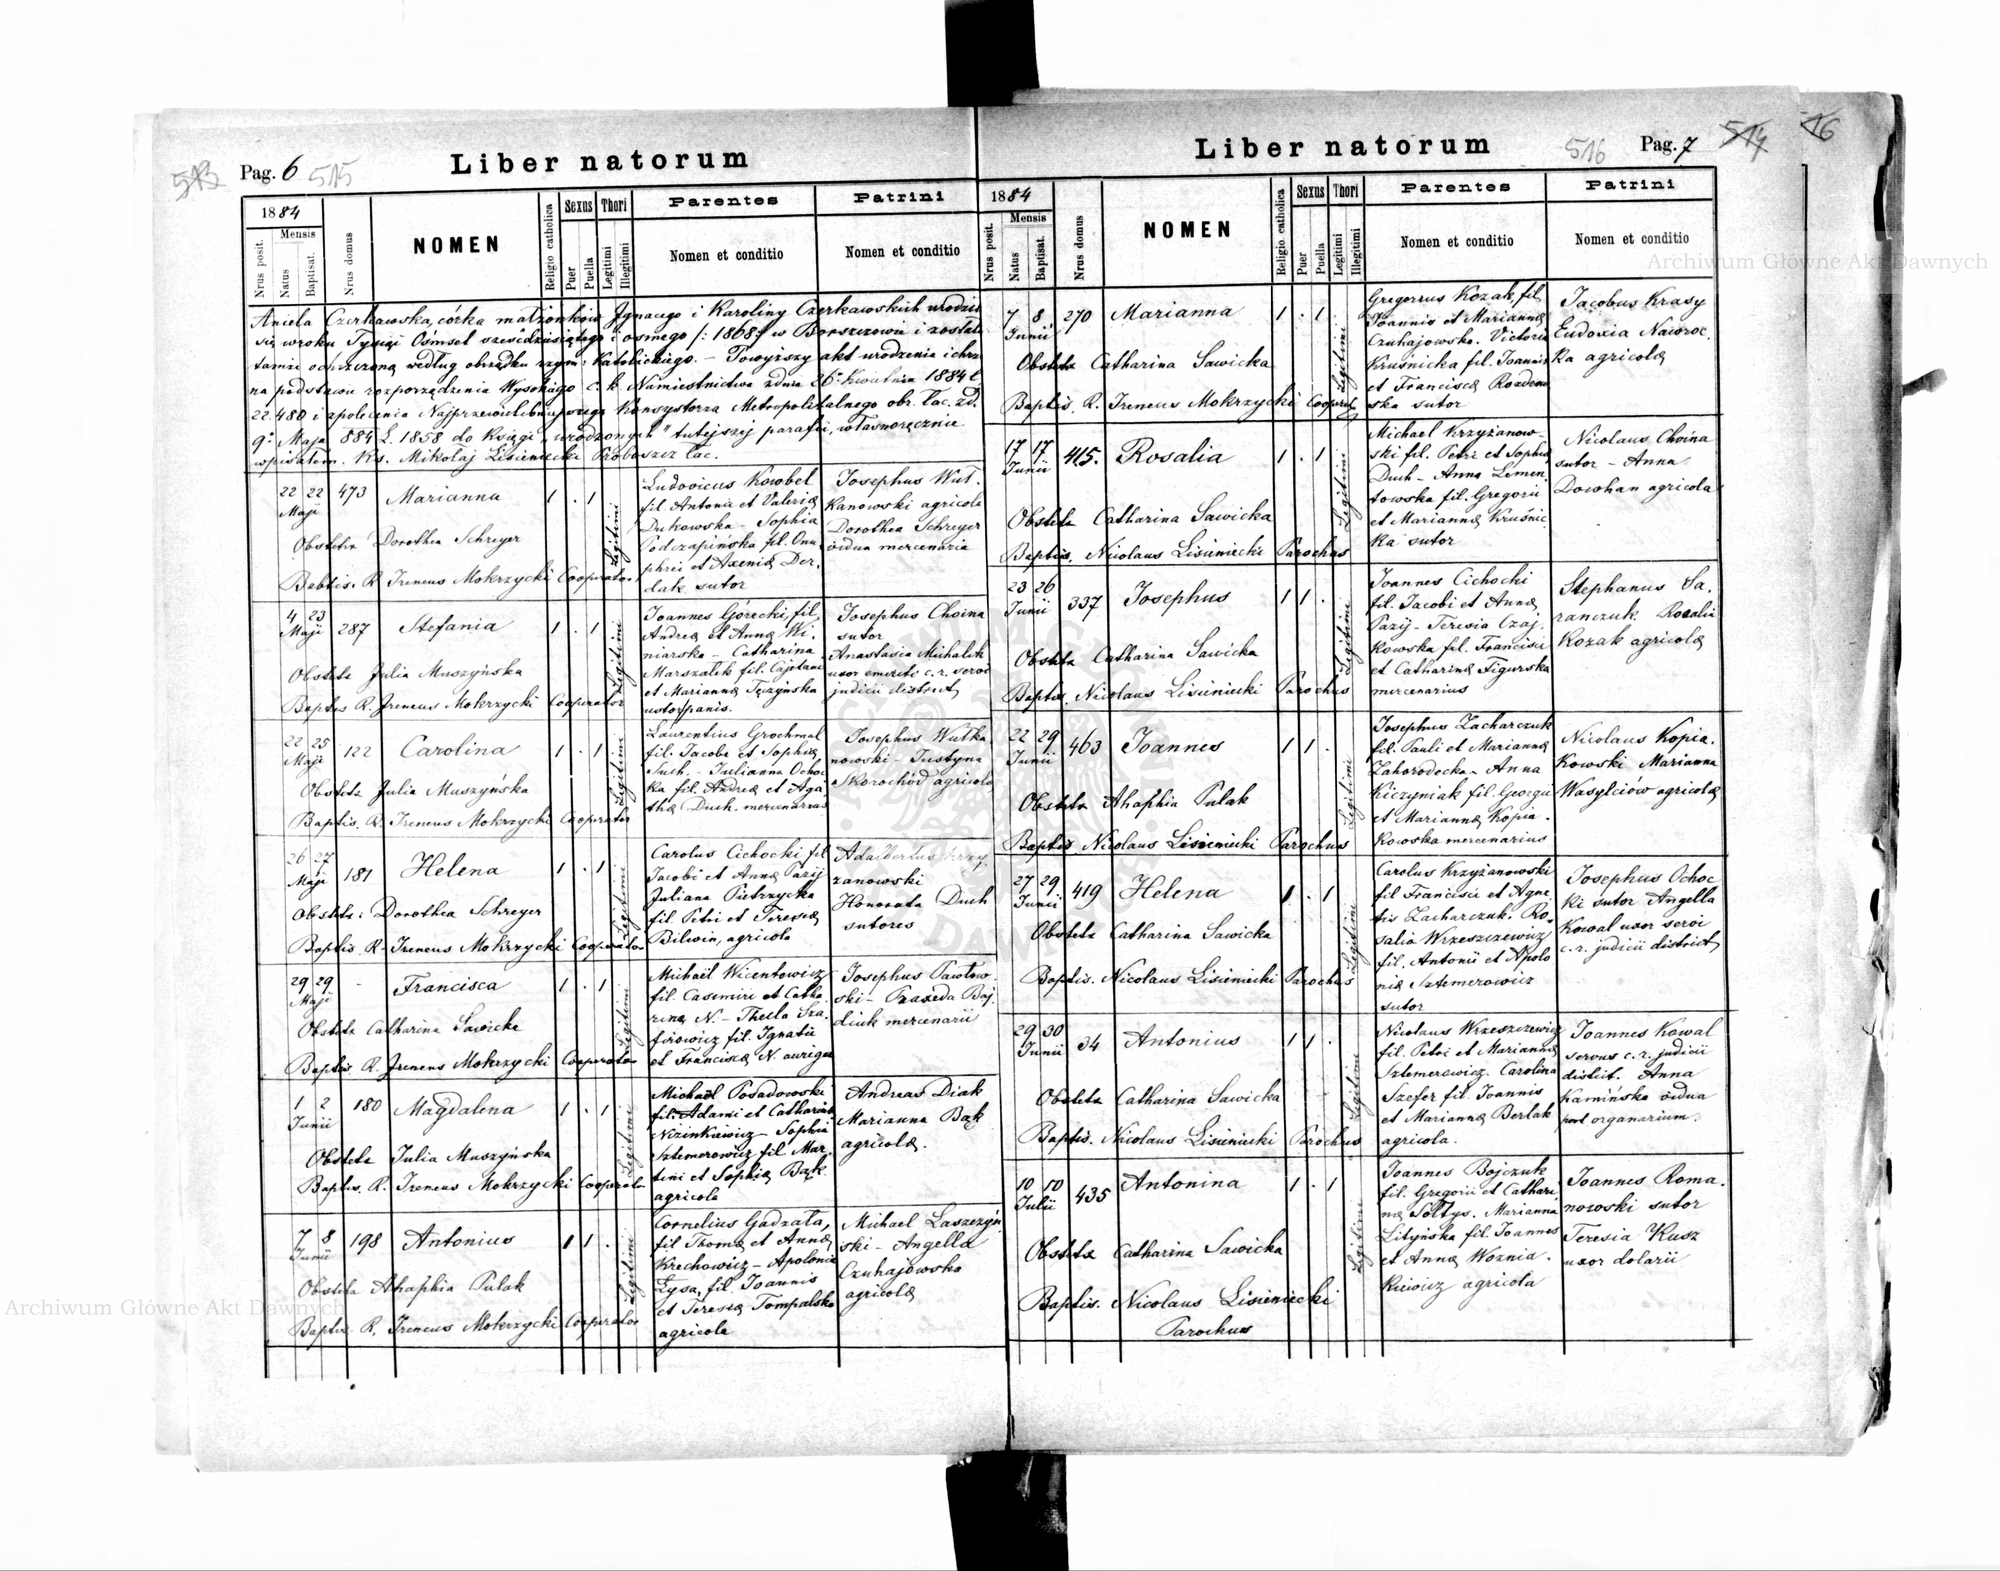 Liber natorum
Pag. 6 515
513
1884
Mensis
Nrus posit.
Natus
Baptisat.
Nrus domus
NOMEN
Religio catholica
Sexus
Puer
Puella
Thori
Legitimi
Illegitimi
Parentes
Nomen et conditio
Patrini
Nomen et conditio
Aniela Czerkawska, córka małżonków Ignacego i Karoliny Czerkawskich urodziła
się w roku Tysiąc Ośmset sześćdziesiątego i osmego /: 1868 :/ w Borszczowie i została
tamże ochrzczoną według obrządku rzym: katolickiego. – Powyższy akt urodzenia i chrztu
na podstawie rozporządzenia Wysokiego c. k. Namiestnictwa z dnia 26º Kwietnia 1884 L
22.480 i z polecenia Najprzewielebniejszego Konsystorza Metropolitalnego obr. łac. z d.
9º Maja 884 L. 1858 do Księgi „urodzonych" tutejszej parafii, własnoręcznie
wpisałem. Ks. Mikołaj Lisieniecki Proboszcz łac.
22 22 473 Marianna 1 . 1
Maji
Obstetrix Dorothea Schreyer
Babtis. R. Ireneus Mokrzycki Cooperator
Legitimi
Ludovicus Kowbel
fil. Antonii et Valeriæ
Dutkowska – Sophia
Podczapińska fil. Onu
phrei et Axeniæ Der.
dak sutor
Josephus Wut.
kanowski agricola
Dorothea Schreyer
vidua mercenaria
4 23 287 Stefania 1 . 1
Maji
Obsteta Julia Muszyńska
Baptis R. Ireneus Mokrzycki Cooperator
Legitimi
Joannes Górecki, fil.
Andreæ et Annæ Wi.
niarska – Catharina
Marszalek fil. Cajetani
et Mariannæ Tęczyńska
ustor panis.
Josephus Choina
sutor
Anastasia Michalek
uxor emeriti c. r. servi
judicii district.
22 25 122 Carolina 1 . 1
Maji
Obsteta Julia Muszyńska
Baptis. R. Ireneus Mokrzycki Cooperator
Legitimi
Laurentius Grochmal
fil. Jacobi et Sophiæ
Such. – Julianna Ochoc
ka fil. Andreæ et Aga
thæ Duch. mercenarius
Josephus Wutka
nowski – Justyna
Skorochód agricolæ
26 27 181 Helena 1 . 1
Maji
Obsteta: Dorothea Schreyer
Baptis. R. Ireneus Mokrzycki Cooperator
Legitimi
Carolus Cichocki fil
Jacobi et Annæ Pazij
Juliana Pietrzycka
fil. Petri et Teresiæ
Bilwin, agricola
Adalbertus Krzy.
żanowski
Honorata Duch
sutores
29 29 - Francisca 1 . 1
Maji
Obsteta Catharina Sawicka
Baptis R. Ireneus Mokrzycki Cooperator
Legitimi
Michaël Wicentowicz
fil. Casimiri et Catha
rinæ N. – Thecla Sza.
firowicz fil. Ignatii
et Franciscæ N. auriga
Josephus Pawłow.
ski – Praxeda Baj.
diuk mercenarii
1 2 180 Magdalena 1 . 1
Junii
Obsteta Julia Muszyńska
Baptis. R. Ireneus Mokrzycki Cooperator
Legitimi
Michaël Posadowski
fil. Adami et Catharinæ
Nizinkiewicz – Sophia
Sztemerowicz fil. Mar.
tini et Sophiæ Bąk
agricola
Andreas Diak
Marianna Bąk
agricolæ.
7 8 198 Antonius 1 1 .
Junii
Obsteta Ahaphia Pulak
Baptis. R. Ireneus Mokrzycki Cooperator
Legitimi
Cornelius Gadzała,
fil Thomæ et Annæ
Krechowicz – Apolonia
Łysa, fil. Joannis
et Teresiæ Tompalska
agricola
Michael Łaszczyń
ski – Angella
Czuhajowska
agricolæ
Liber natorum
516 Pag. 7 514 516
1884
Mensis
Nrus posit.
Natus
Baptisat.
Nrus domus
NOMEN
Religio catholica
Sexus
Puer
Puella
Thori
Legitimi
Illegitimi
Parentes
Nomen et conditio
Patrini
Nomen et conditio
7 8 270 Marianna 1 . 1
Junii
Obsteta Catharina Sawicka
Baptis. R. Ireneus Mokrzycki Cooperat.
Legitimi
Gregorius Kozak, fil
Joannis et Mariannæ
Czuhajowska. Victoria
Kruśnicka fil. Joannis
et Franciscæ Rozdem
ska sutor
Jacobus Krasy
Eudoxia Nairoc
ka agricolæ
17 17 415. Rosalia 1 . 1
Junii
Obsteta Catharina Sawicka
Baptis. Nicolaus Lisieniecki Parochus
Legitimi
Michael Krzyżanow-
ski fil. Petri et Sophiæ
Duch – Anna Lemen
towska fil. Gregorii
et Mariannæ Kruśnic
ka sutor
Nicolaus Choina
sutor – Anna
Dowhan agricola
23 26 337 Josephus 1 1 .
Junii
Obsteta Catharina Sawicka
Baptis. Nicolaus Lisieniecki Parochus
Legitimi
Joannes Cichocki
fil. Jacobi et Annæ
Pazij – Teresia Czaj.
kowska fil. Francisci
et Catharinæ Figurska
mercenarius
Stephanus Sa.
ranczuk. Rosalia
Kozak agricolæ
22 29 463 Joannes 1 1 .
Junii
Obsteta Ahaphia Pulak
Baptis Nicolaus Lisieniecki Parochus
Legitimi
Josephus Zacharczuk
fil. Pauli et Mariannæ
Zahorodecka – Anna
Kiczyniak fil. Georgii
et Mariannæ Kopia.
kowska mercenarius
Nicolaus Kopia.
kowski Marianna
Wasylciów agricolæ
27 29 419 Helena 1 . 1
Junii
Obsteta Catharina Sawicka
Baptis. Nicolaus Lisieniecki Parochus
Legitimi
Carolus Krzyżanowski
fil Francisci et Agne
tis Zacharczuk. Ro.
salia Wrzeszczewicz
fil. Antonii et Apolo
niæ Sztemerowicz
sutor
Josephus Ochoc
ki sutor Angella
Kowal uxor servi
c. r. judicii district.
29 30 34 Antonius 1 1 .
Junii
Obsteta Catharina Sawicka
Baptis. Nicolaus Lisieniecki Parochus
Legitimi
Nicolaus Wrzeszczewicz
fil. Petri et Mariannæ
Sztemerowicz. Carolina
Szefer fil Joannis
et Mariannæ Berlak
agricola.
Joannes Kowal
servus c. r. judicii
district. Anna
Kamińska vidua
post organarium.
10 10 435 Antonina 1 . 1
Julii
Obsteta Catharina Sawicka
Baptis. Nicolaus Lisieniecki
Parochus
Legitimi
Joannes Bojczuk
fil. Gregorii et Cathari
næ Sołtys. Marianna
Lityńska fil. Joannes
et Annæ Woznia.
kiewicz agricola
Joannes Roma.
nowski sutor
Teresia Kusz
uxor dolarii
Archiwum Główne Akt Dawnych
Archiwum Główne Akt Dawnych